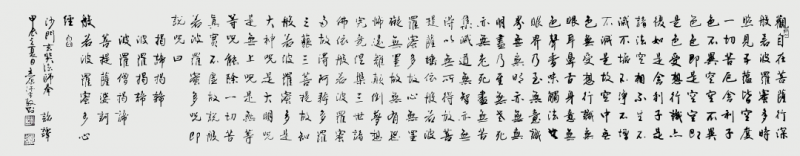 觀自在菩薩行深
般若波羅蜜多時
照見五蘊皆空度
一切苦厄舍利子
色不異空空不異
色色即是空空即
是色受想行識亦
復如是舍利子是
諸法空相不生不
滅不垢不淨不增
不減是故空中無
色無受想行識無
眼耳鼻舌身意無
色聲香味觸法無
眼界乃至無意識
界無無明亦無無
明盡乃至無老死
亦無老死盡無苦
集滅道無智亦無
得以無所得故菩
提薩埵依般若波
羅蜜多故心無罣
礙無罣礙故無有恐
怖遠離顛倒夢想
究竟涅槃三世諸
佛依般若波羅蜜
多故得阿耨多羅
三藐三菩提故知
般若波羅蜜多是
大神咒是大明咒
是無上咒是無等
等咒能除一切苦
真實不虛故說般
若波羅蜜多咒即
說咒曰
揭諦揭諦
波羅揭諦
波羅僧揭諦
菩提薩婆訶
般若波羅蜜多心
經
沙門玄奘法師奉 詔譯